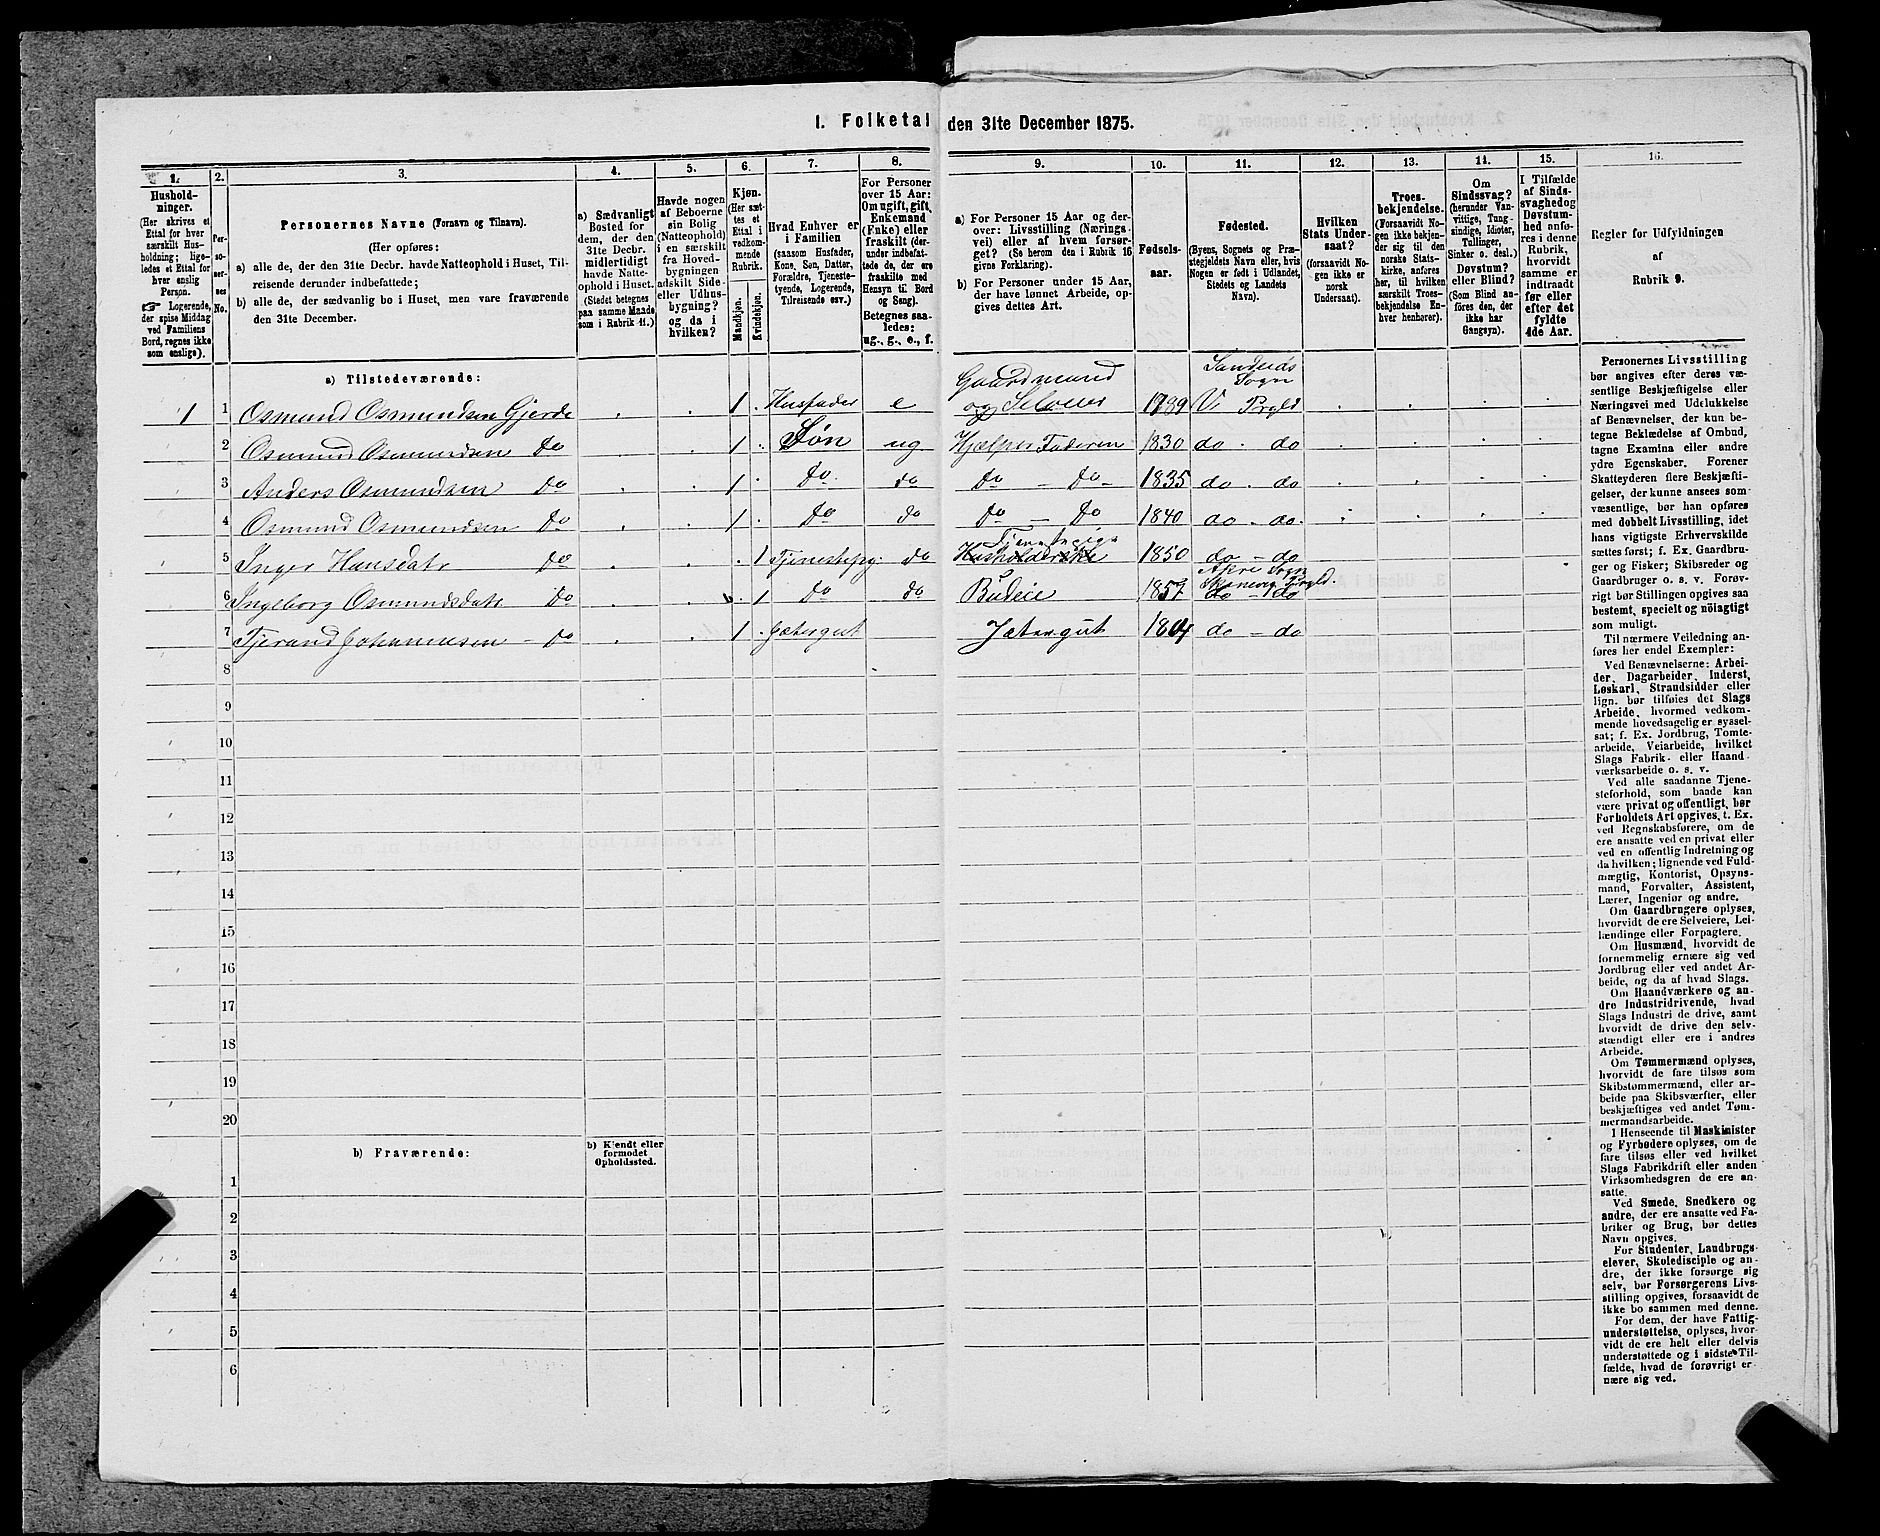 1. Folketal den 31te December 1875.
1.
Hushold-
ninger.
(Her skrives et
Ettal for hver
særskilt Hus-
holdning; lige-
ledes et Ettal for
hver enslig
Person.
Logerende,
der spise Middag
ved Familiens
Bord, regnes ikke
som enslige).
2.
Per-
so-
ner-
nes
No.
3.
Personernes Navne (Fornavn og Tilnavn).
(Her opføres:
a) alle de, der den 31te Decbr. havde Natteophold i Huset, Til-
reisende derunder indbefattede;
b) alle de, der sædvanlig bo i Huset, men vare fraværende
den 31te December.
4.
a) Sædvanligt
Bosted for
dem, der den
31te Decbr.
midlertidigt
havde Natte-
ophold i Huset.
(Stedet betegnes
paa samme Maade
som i Rubrik 11.)
5.
Havde nogen
af Beboerne
sin Bolig
(Natteophold)
i en særskilt
fra Hoved-
bygningen
adskilt Side-
eller Udhus-
bygning?
og da i
hvilken?
6.
Kjøn.
(Her sæt-
tes et
Ettal i
vedkom-
mende
Rubrik.
Mandkjøn.
Kvindekjøn.
7.
Hvad Enhver er
i Familien
(saasom Husfader,
Kone, Søn, Datter,
Forældre, Tjeneste-
tyende, Logerende,
Tilreisende osv.)
8.
For Personer
over 15 Aar:
Om ugift, gift,
Enkemand
(Enke) eller
fraskilt (der-
under indbefat-
tede de, der ere
fraskilte med
Hensyn til Bord
og Seng).
Betegnes saa-
ledes:
ug., g., e., f.
9.
a) For Personer 15 Aar og der-
over: Livsstilling (Nærings-
vei) eller af hvem forsør-
get? (Se herom den i Rubrik 16
givne Forklaring).
b) For Personer under 15 Aar,
der have lønnet Arbeide, op-
gives dettes Art.
10.
Fødsels-
aar.
11.
Fødested.
(Byens, Sognets og Præ-
stegjeldets Navn eller, hvis
Nogen er født i Udlandet,
Stedets og Landets
Navn).
12.
Hvilken
Stats Under-
saat?
(forsaavidt No-
gen ikke er
norsk
Undersaat).
13.
Troes-
bekjendelse.
(Forsaavidt No-
gen ikke bekjen-
der sig til den
norske Stats-
kirke, anføres
her, til hvilken
særskilt Troes-
bekjendelse En-
hver henhører).
14.
Om
Sindssvag?
(herunder Van-
vittige, Tung-
sindige, Idioter,
Tullinger,
Sinker o. desl.)
Døvstum?
eller Blind?
(Som Blind an-
føres den, der
ikke har
Gangsyn).
15.
I Tilfælde
af Sinds-
svaghed og
Døvstum-
hed anfø-
res i denne
Rubrik,
hvorvidt
samme er
indtraadt
før eller
efter det
fyldte
4de Aar.
16.
Regler for Udfyldningen
af
Rubrik 9.
a) Tilstedeværende:
1 1 Osmund Osmundsen Gjerde 1 Husfader e Gaardmand og Selveier 1789 Sandeids Sogn Vi Prgld
2 Osmund Osmundsen Do 1 Søn ug Hjælper Faderen 1830 do do
3 Anders Osmundsen Do 1 Do do Do - Do 1835 do do
4 Osmund Osmundsen Do 1 Do do Do - Do 1840 do do
5 Inger Hansdatr Do 1 do 1850 do - do
6 Ingeborg Osmundsdatr Do 1 Do do Budeie 1857 Sogn do - do
7 Tjerand Johannesen - Do 1 Gjætergut Gjætergut do - do
8
9
10
11
12
13
14
15
16
17
18
19
20
b) Fraværende:
b) Kjendt eller
formodet
Opholdssted.
1
2
3
4
5
6
Personernes Livsstilling
bør angives efter deres væ-
sentlige Beskjæftigelse eller
Næringsvei med Udelukkelse
af Benævnelser, der kun be-
tegne Beklædelse af Ombud,
tagne Examina eller andre
ydre Egenskaber. Forener
Skatteyderen flere Beskjæfti-
gelser, der kunne ansees som
væsentlige, bør han opføres
med dobbelt Livsstilling, idet
hans vigtigste Erhvervskilde
sættes først; f. Ex. Gaardbru-
ger og Fisker; Skibsreder og
Gaardbruger o. s. v. Forøv-
rigt bør Stillingen opgives saa
bestemt, specielt og nøiagtigt
som muligt.
Til nærmere Veiledning an-
føres her endel Exempler:
Ved Benævnelserne: Arbei-
der, Dagarbeider, Inderst,
Løskarl, Strandsidder eller
lign. bør tilføies det Slags
Arbeide, hvormed vedkom-
mende hovedsagelig er syssel-
sat; f. Ex. Jordbrug, Tomte-
arbeide, Veiarbeide, hvilket
Slags Fabrik- eller Haand
værksarbeide o. s. v.
Ved alle saadanne Tjene-
steforhold, som baade kan
være privat og offentligt, bør
Forholdets Art opgives, t. Ex.
ved Regnskabsførere, om de
ere ansatte ved en privat eller
ved en offentlig Indretning og
da hvilken; lignende ved Fuld-
mægtig, Kontorist, Opsyns-
mand, Forvalter, Assistent,
Lærer, Ingeniør og andre.
Om Gaardbrugere oplyses,
hvorvidt de ere Selveiere, Lei-
lændinge eller Forpagtere.
Om Husmænd, hvorvidt de
fornemmelig ernære sig ved
Jordbrug eller ved andet Ar-
beide, og da af hvad Slags.
Om Haandværkere og an-
dre Industridrivende, hvad
Slags Industri de drive, samt
hvorvidt de drive den selv-
stændigt eller ere i andres
Arbeide.
Om Tømmermænd oplyses,
hvorvidt de fare tilsøs som
Skibstømmermænd, eller ar-
beide paa Skibsværfter, eller
beskjæftiges ved andet Tøm-
mermandsarbeide.
I Henseende til Maskinister
og Fyrbødere oplyses, om de
fare tilsøs eller ved hvilket
Slags Fabrikdrift eller anden
Virksomhedsgren de ere an-
satte.
Ved Smede, Snedkere og
andre, der ere ansatte ved Fa-
briker og Brug, bør dettes
Navn opgives.
For Studenter, Landbrugs-
elever, Skoledisciple og an-
dre, der ikke forsørge sig
selv, bør Forsørgerens Livs-
stilling opgives, forsaavidt de
ikke bo sammen med denne.
For dem, der have Fattig-
understøttelse, oplyses, hvor-
vidt de ere helt eller delvis
understøttede og i sidste Til-
fælde, hvad de forøvrigt er-
nære sig ved.